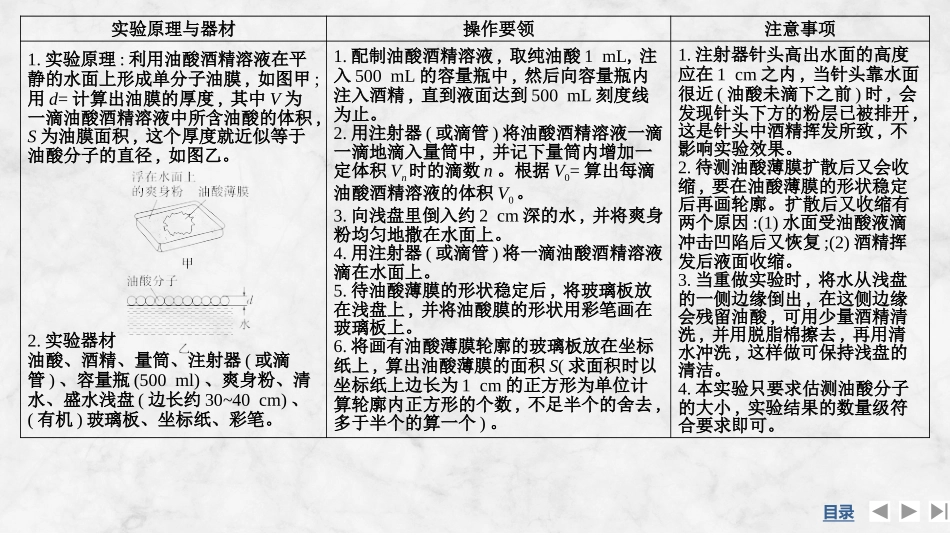 实验原理与器材
操作要领
注意事项
1. 实验原理 : 利用油酸酒精溶液在平
静的水面上形成单分子油膜 , 如图甲 ;
用 d= 计算出油膜的厚度 , 其中 V 为
一滴油酸酒精溶液中所含油酸的体积 ,
S 为油膜面积 , 这个厚度就近似等于
油酸分子的直径 , 如图乙。
浮在水面上
的爽身粉
油酸薄膜
甲
油酸分子
d
水
乙
2. 实验器材
油酸、酒精、量筒、注射器 ( 或滴
管 ) 、容量瓶 (500 ml) 、爽身粉、清
水、盛水浅盘 ( 边长约 30~40 cm) 、
( 有机 ) 玻璃板、坐标纸、彩笔。
1. 配制油酸酒精溶液 , 取纯油酸 1 mL, 注
入 500 mL 的容量瓶中 , 然后向容量瓶内
注入酒精 , 直到液面达到 500 mL 刻度线
为止。
2. 用注射器 ( 或滴管 ) 将油酸酒精溶液一滴
一滴地滴入量筒中 , 并记下量筒内增加一
定体积 Vn 时的滴数 n 。根据 V0= 算出每滴
油酸酒精溶液的体积 V0 。
3. 向浅盘里倒入约 2 cm 深的水 , 并将爽身
粉均匀地撒在水面上。
4. 用注射器 ( 或滴管 ) 将一滴油酸酒精溶液
滴在水面上。
5. 待油酸薄膜的形状稳定后 , 将玻璃板放
在浅盘上 , 并将油酸膜的形状用彩笔画在
玻璃板上。
6. 将画有油酸薄膜轮廓的玻璃板放在坐标
纸上 , 算出油酸薄膜的面积 S( 求面积时以
坐标纸上边长为 1 cm 的正方形为单位计
算轮廓内正方形的个数 , 不足半个的舍去 ,
多于半个的算一个 ) 。
1. 注射器针头高出水面的高度
应在 1 cm 之内 , 当针头靠水面
很近 ( 油酸未滴下之前 ) 时 , 会
发现针头下方的粉层已被排开 ,
这是针头中酒精挥发所致 , 不
影响实验效果。
2. 待测油酸薄膜扩散后又会收
缩 , 要在油酸薄膜的形状稳定
后再画轮廓。扩散后又收缩有
两个原因 :(1) 水面受油酸液滴
冲击凹陷后又恢复 ;(2) 酒精挥
发后液面收缩。
3. 当重做实验时 , 将水从浅盘
的一侧边缘倒出 , 在这侧边缘
会残留油酸 , 可用少量酒精清
洗 , 并用脱脂棉擦去 , 再用清
水冲洗 , 这样做可保持浅盘的
清洁。
4. 本实验只要求估测油酸分子
的大小 , 实验结果的数量级符
合要求即可。
目录